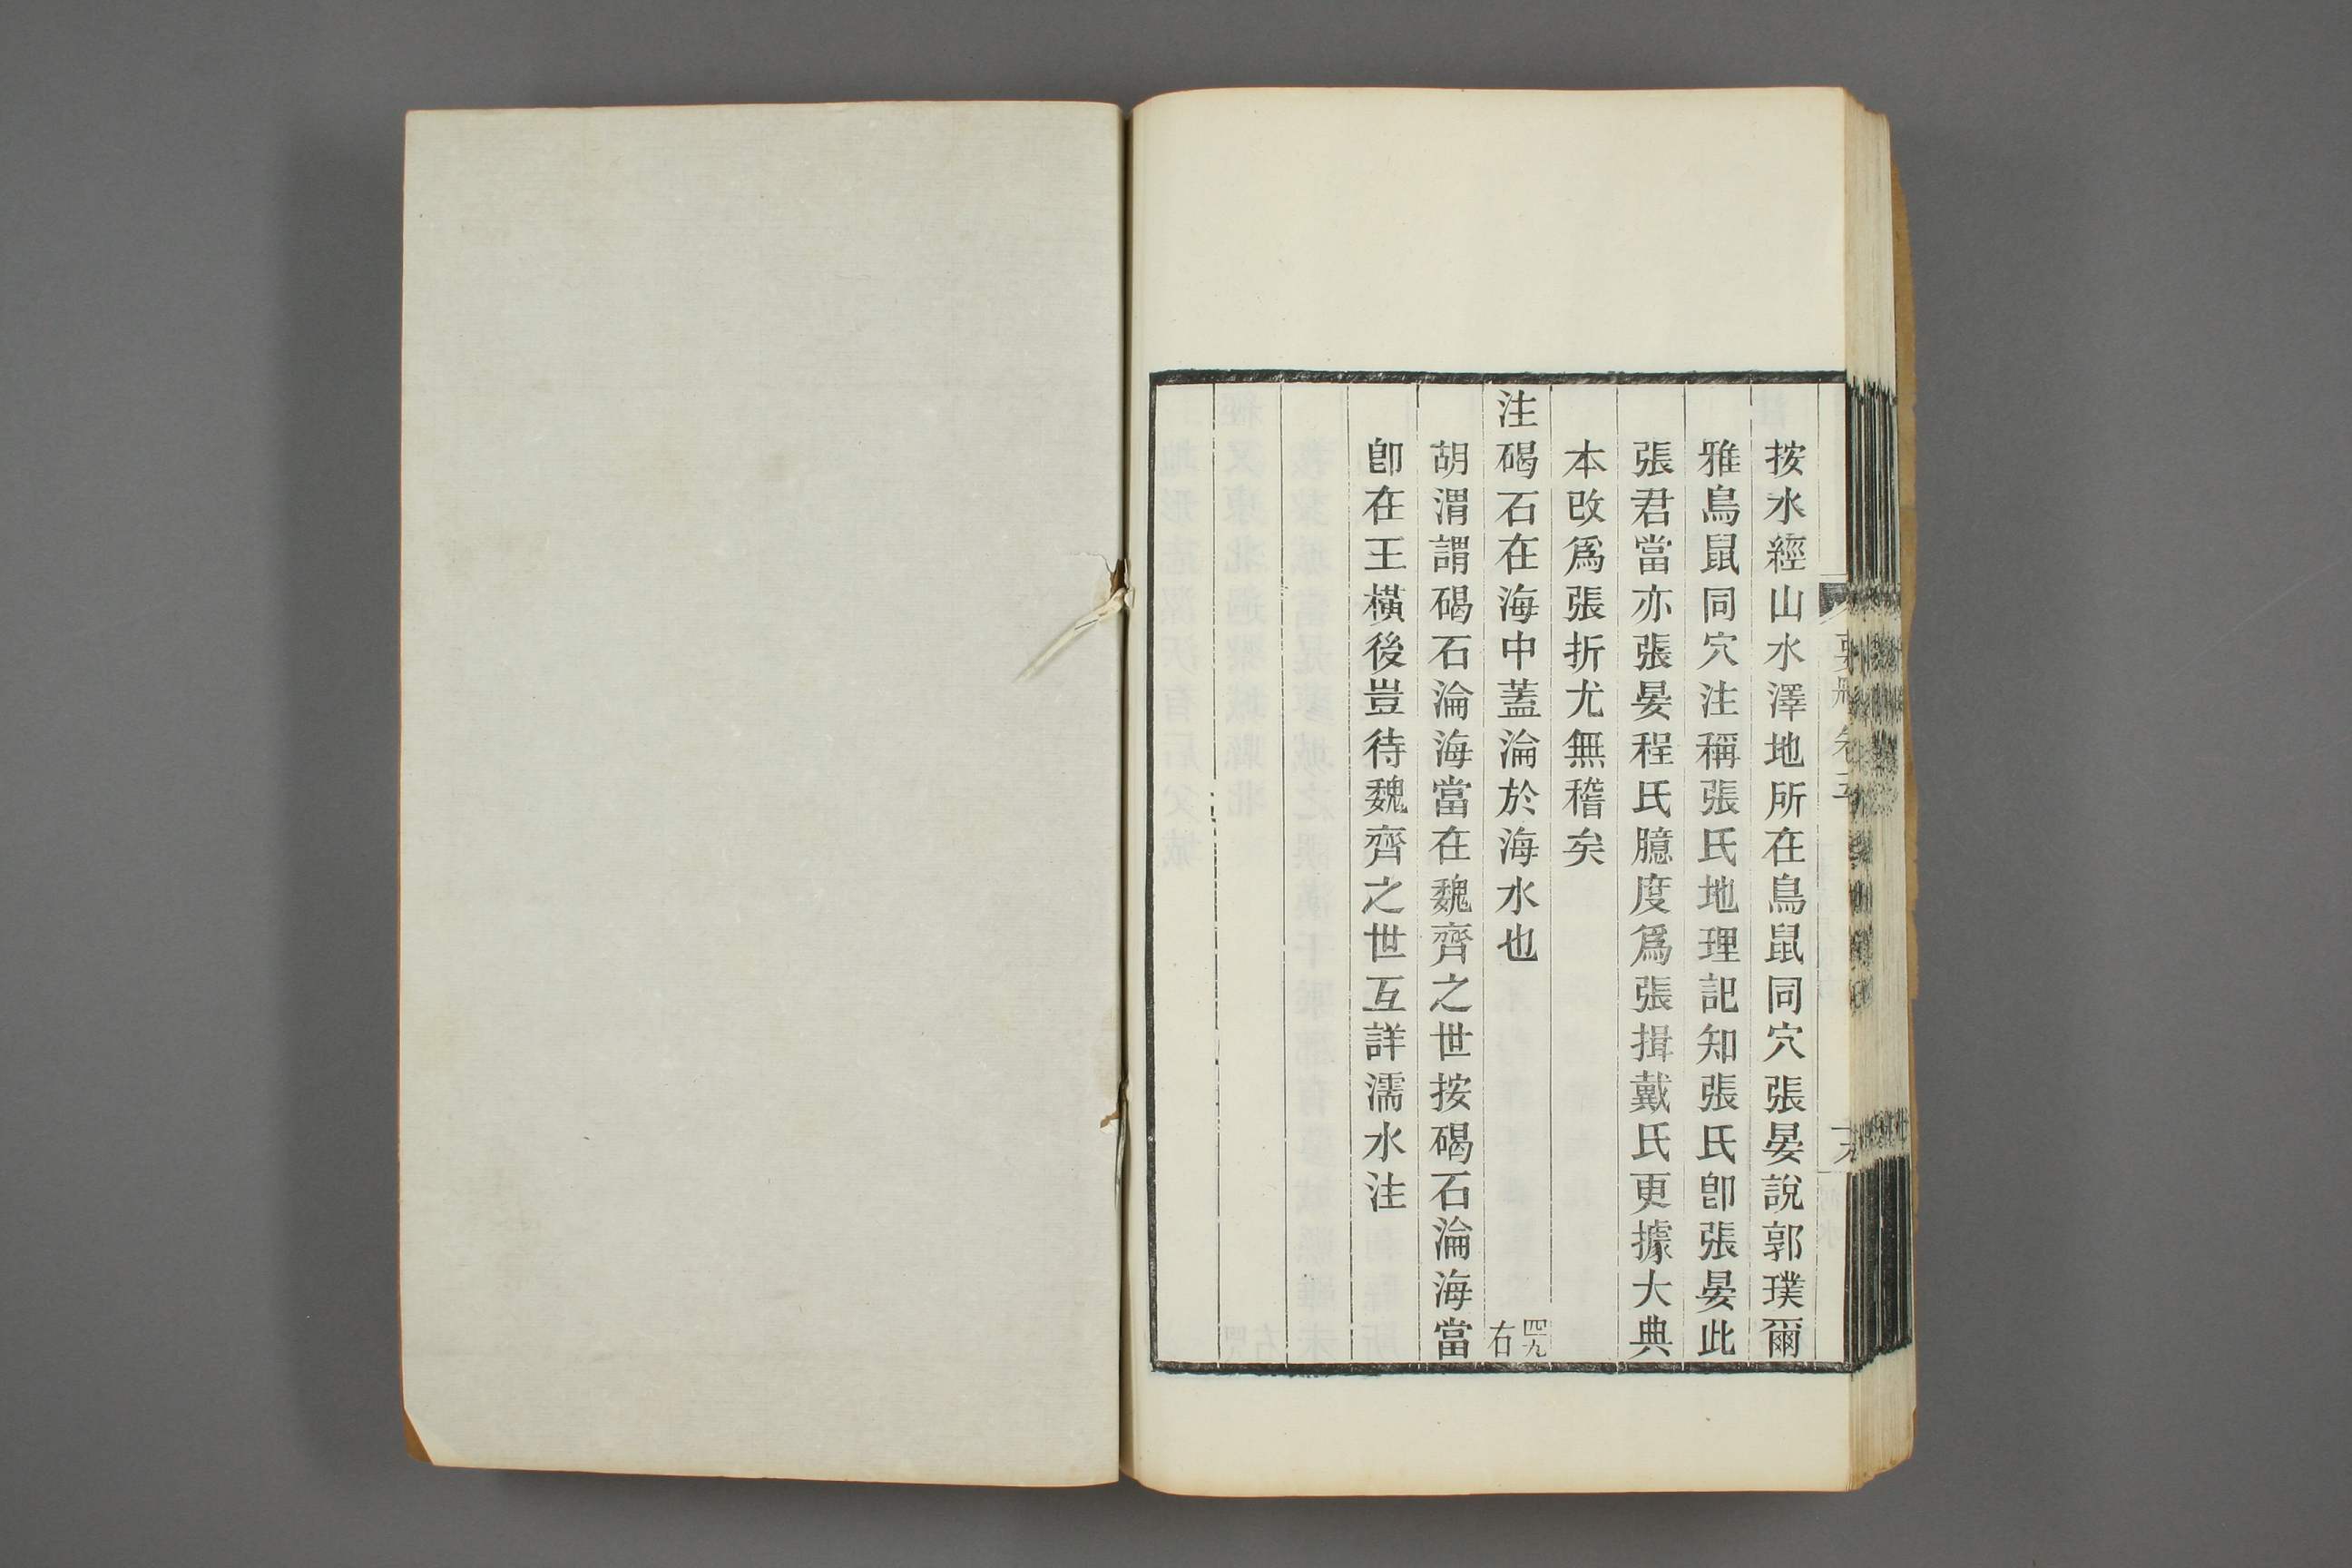 按水經山水澤地所在鳥鼠同穴張晏說郭璞爾
雅鳥鼠同穴注稱張氏地理記知張氏卽張晏此
張君當亦張晏程氏臆度爲張揖戴氏更據大典
本改爲張折尤無稽矣
注碣石在海中蓋淪於海水也
四九
右
胡渭謂碣石淪海當在魏齊之世按碣石淪海當
卽在王橫後豈待魏齊之世互詳濡水注